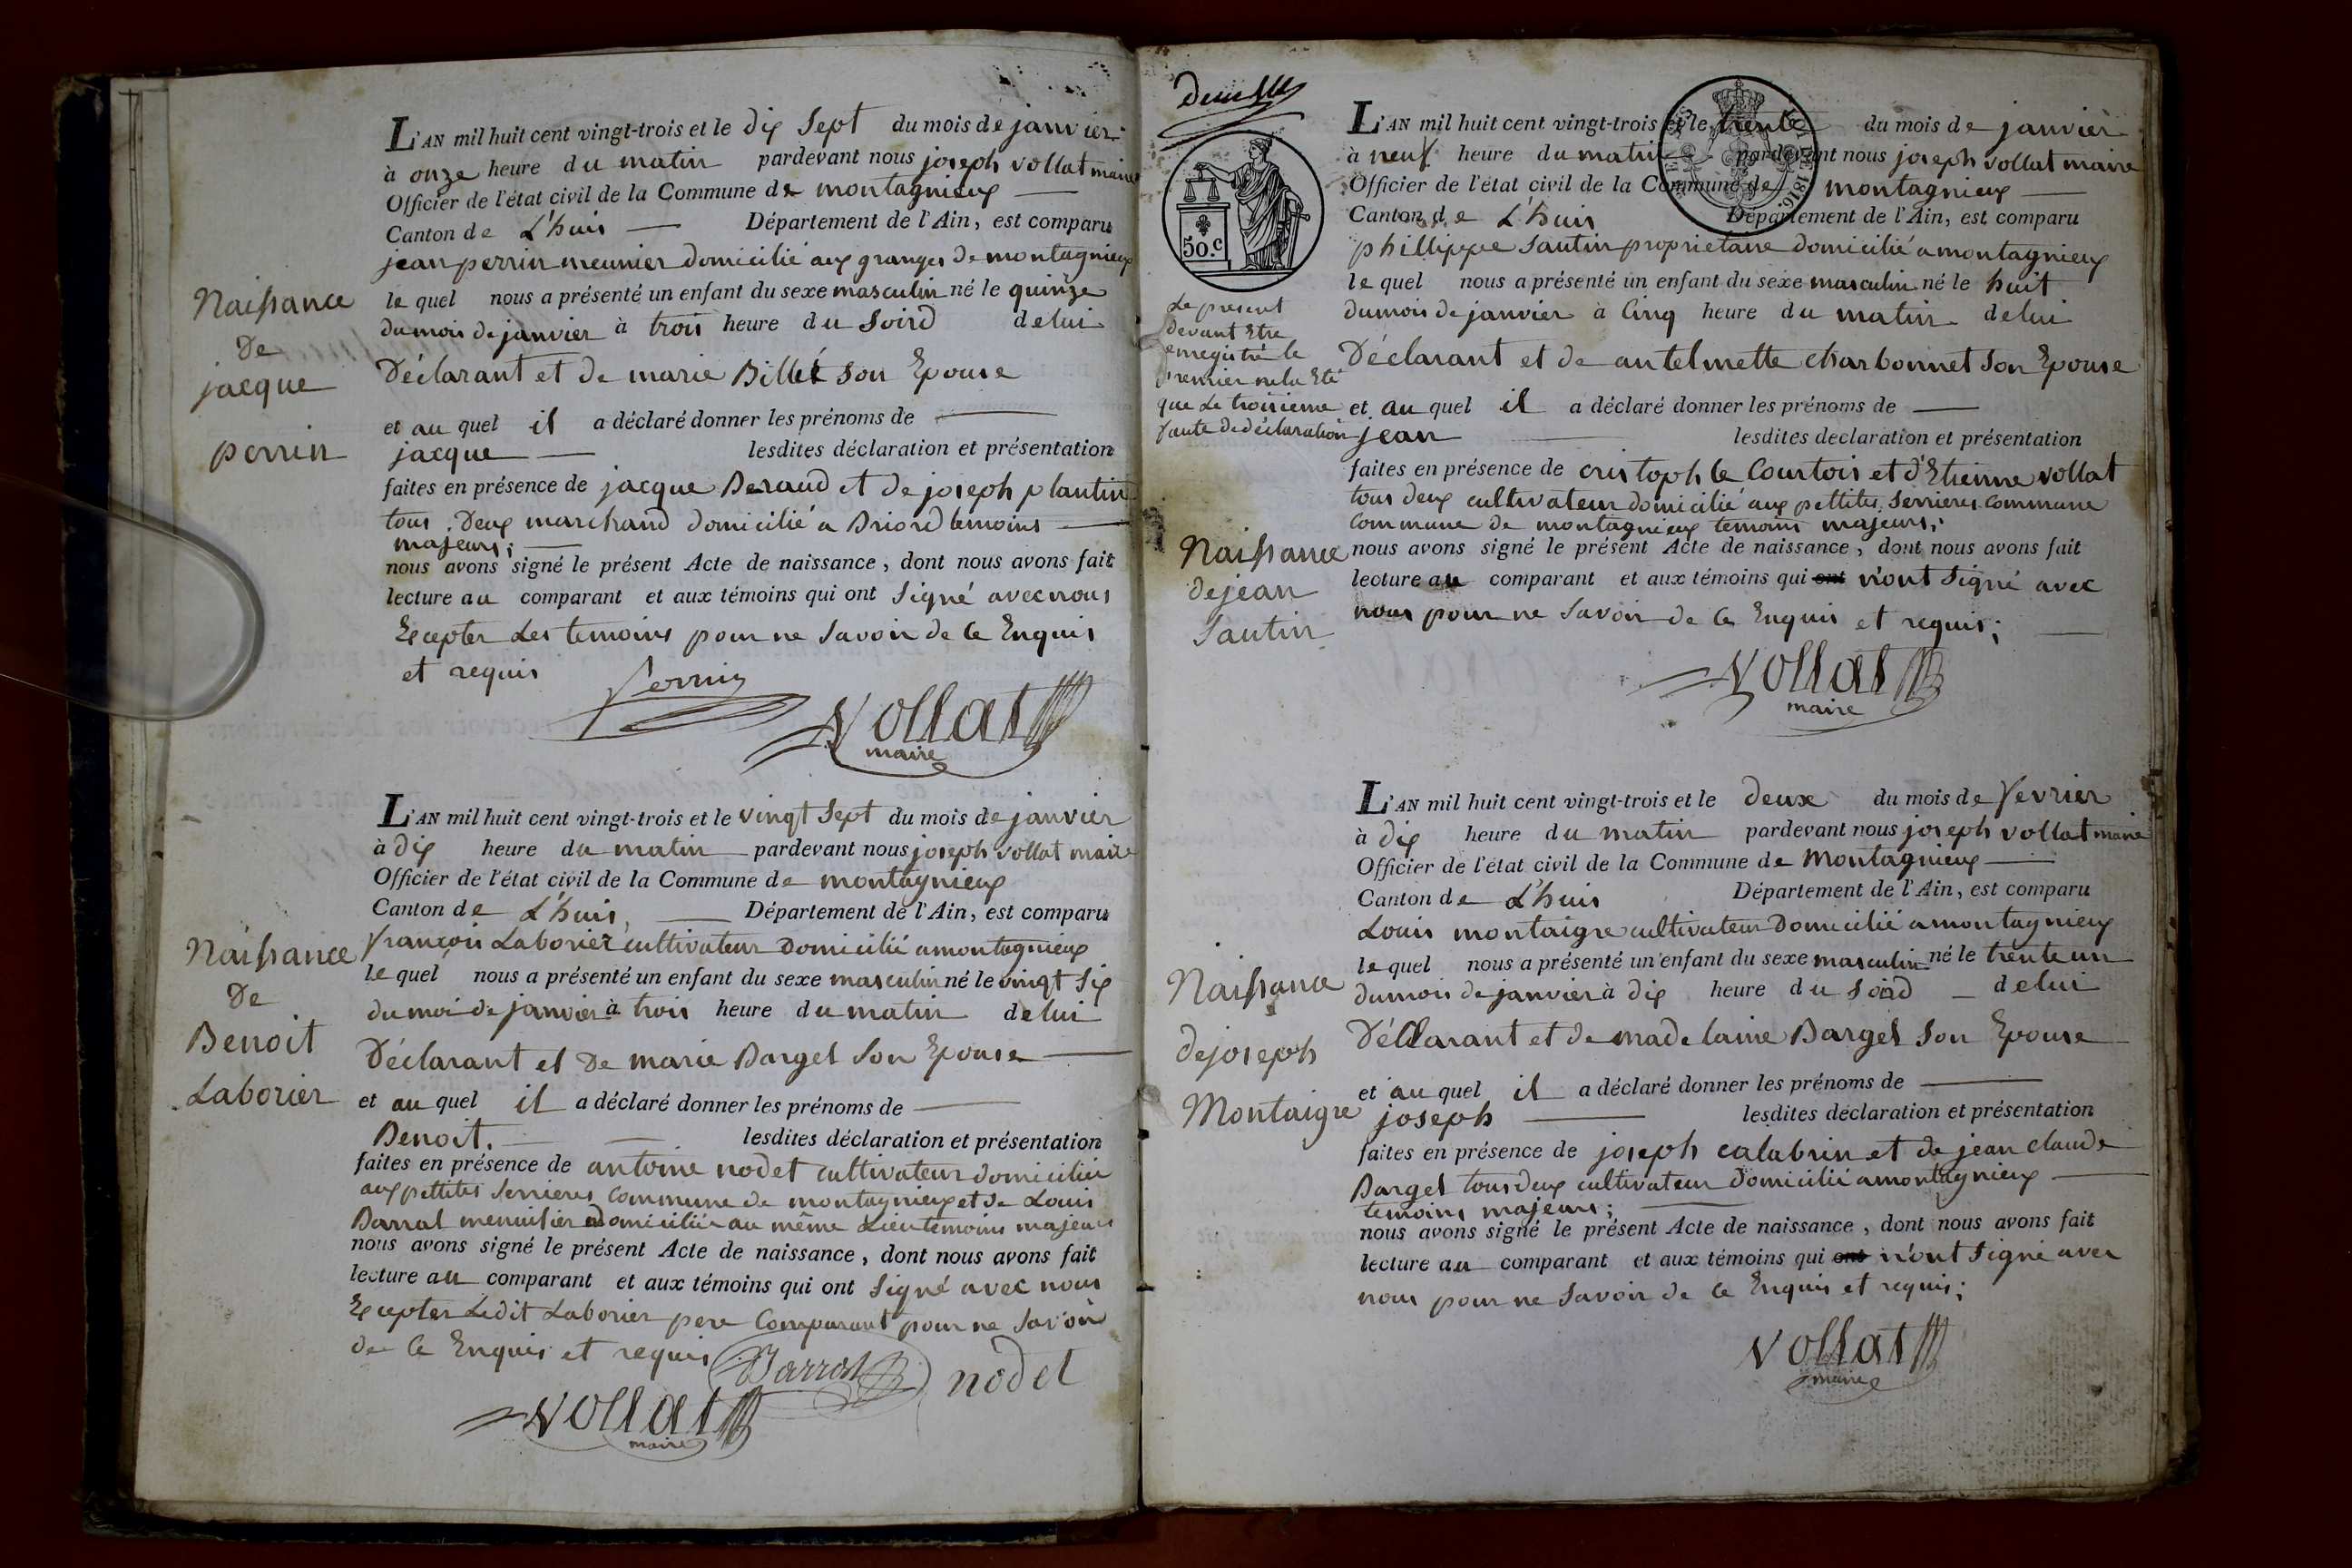 L'AN mil huit cent vingt-trois et le dix sept du mois de janvier
à onze heure du matin pardevant nous joseph vollat maire
Officier de l'état civil de la Commune de montagnieux
Canton de L'huis Département de l'Ain, est comparu
jean perrin meunier domicilié aux granges de montagnieux
le quel nous a présenté un enfant du sexe masculin né le quinze
du mois de janvier à trois heure du soird de lui
Déclarant et de marie Billet son Epouse
et au quel il a déclaré donner les prénoms de
jacque lesdites déclaration et présentation
faites en présence de jacque Beraud et de joseph plantin
tous Deux marchand domicilié a Briord temoins
majeurs;
nous avons signé le présent Acte de naissance, dont nous avons fait
lecture au comparant et aux témoins qui ont signé avec nous
Excepter les temoins pour ne savoir de ce Enquis
et requis
Perrin
vollat
maire
Naissance
De
jacque
perrin
L'AN mil huit cent vingt-trois et le vingt sept du mois de janvier
à dix heure du matin pardevant nous joseph vollat maire
Officier de l'état civil de la Commune de montagnieux
Canton de L'huis Département de l'Ain, est comparu
françois Laborier cultivateur Domicilié a montagnieux
le quel nous a présenté un enfant du sexe masculin né le vingt six
du moi de janvier à trois heure du matin de lui
Déclarant et De marie Barget son Epouse
et au quel il a déclaré donner les prénoms de
Benoit. lesdites déclaration et présentation
faites en présence de antoine nodet cultivateur domiciliée
aux pettites serrieres commune de montagnieux et de Louis
Barrat menuisier domiciliée au même Lieu temoins majeurs
nous avons signé le présent Acte de naissance, dont nous avons fait
lecture au comparant et aux témoins qui ont signé avec nous
Excepter Ledit Laborier pere Comparant pour ne savoir
de ce Enquis et requis
Barrat
nodet
vollat
maire
Naissance
De
Benoit
Laborier
50.c
Le present
devant Etre
enregistré le
premier
que Le troisieme
faute de déclaration
L'AN mil huit cent vingt-trois et le trente du mois de janvier
à neuf heure du matin pardevant nous joseph vollat maire
Officier de l'état civil de la Commune de montagnieux
Canton de L'huis Département de l'Ain, est comparu
phillippe Sautin proprietaire domicilié a montagnieux
le quel nous a présenté un enfant du sexe masculin né le huit
du mois de janvier à Cinq heure du matin de lui
Déclarant et de antelmette charbonnet son Epouse
et au quel il a déclaré donner les prénoms de
jean lesdites declaration et présentation
faites en présence de cristoph le Courtois et d'Etienne vollat
tous deux cultivateur domicilié aux pettites serrieres commune
commune de montagnieux temoins majeurs;
nous avons signé le présent Acte de naissance, dont nous avons fait
lecture au comparant et aux témoins qui ont n'ont signé avec
nous pour ne savoir de ce Enquis et requis;
vollat
maire
Naissance
de jean
Sautin
L'AN mil huit cent vingt-trois et le deux du mois de fevrier
à dix heure du matin pardevant nous joseph vollat maire
Officier de l'état civil de la Commune de Montagnieux
Canton de L'huis Département de l'Ain, est comparu
Louis montaigre cultivateur Domicilié a montagnieux
le quel nous a présenté un enfant du sexe masculin né le trente un
du mois de janvier à dix heure du soird de lui
Déclarant et de madelaine Barget son Epouse
et au quel il a déclaré donner les prénoms de
joseph lesdites déclaration et présentation
faites en présence de joseph calabrin et de jean claude
Barget tous deux cultivateur domicilié a montagnieux
temoins majeurs;
nous avons signé le présent Acte de naissance, dont nous avons fait
lecture au comparant et aux témoins qui ont n'ont signé avec
nous pour ne savoir de ce Enquis et requis;
vollat
maire
Naissance
de joseph
Montaigre